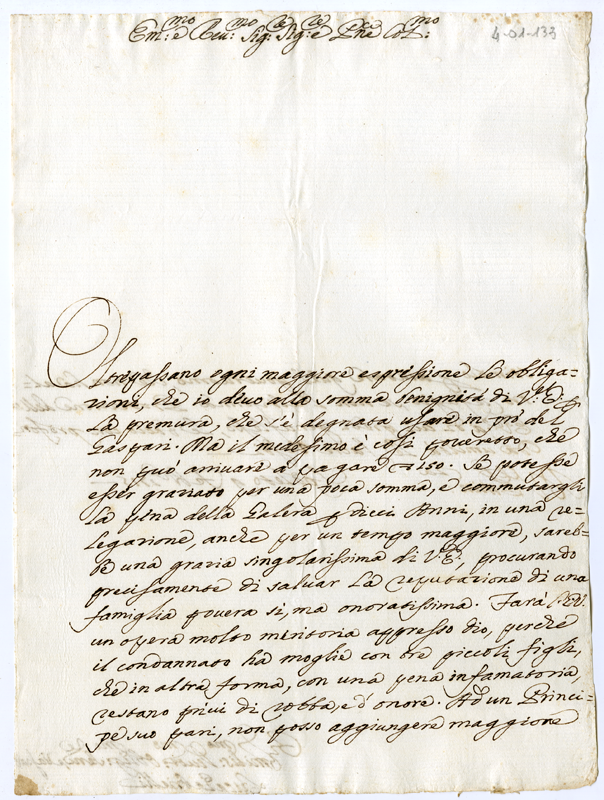 Em:mo e Reu:mo Sig:re Sig:re e Pne Col:mo
4-01-133
Oltrepassano ogni maggiore espressione le obliga=
zioni, che io devo alla somma benignità di V: E:
la premura, che s'è degnata usare in prò del
Gaspari. Ma il medesimo è così poveretto, che
non può arrivare a pagare 150. Se potesse
esser graziato per una poca somma, e commutargli
la pena della Galera dieci Anni, in una re=
legazione, anche per un tempo maggiore, sareb=
be una grazia singolarissima di V: E:, procurando
precisamente di salvar la reputazione di una
famiglia povera sì, ma onoratissima. Farà V: E:
un opera molto meritoria appresso Dio, perche
il condannato ha moglie con tre piccoli figli,
che in altra forma, con una pena infamatoria,
restano privi di robba, e d'onore. Ad un Princi=
pe suo pari, non posso aggiungere maggiore